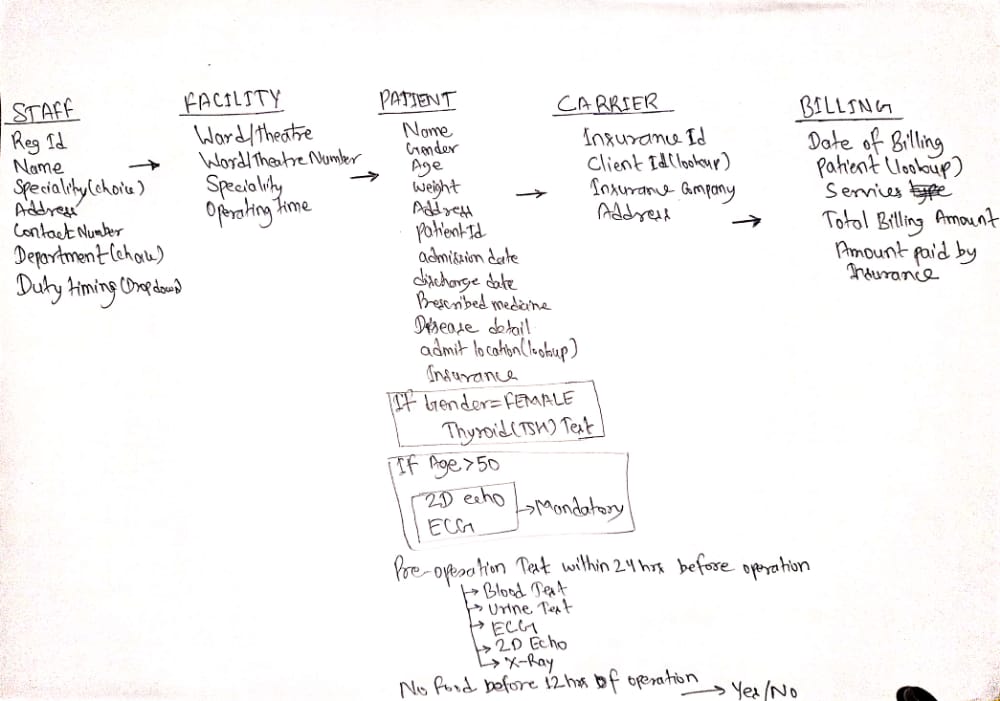 STAFF
Reg Id
Name
Speciality(choice)
Address
Contact Number
Department(choice)
Duty timing(Dropdown)
FACILITY
Ward/theatre
Ward/Theatre Number
Speciality
Operating time
PATIENT
Name
Gender
Age
Weight
Address
Patient Id
admission date
discharge date
Prescribed medicine
Disease detail
admit location(lookup)
Insurance
If Gender=FEMALE
Thyroid(TSH) Test
If Age>50
2D echo
ECG
→Mandatory
Pre-operation Test within 24 hrs before operation
→ Blood Test
→ Urine Test
→ ECG
→ 2D Echo
→ X-Ray
No food before 12 hrs of operation → Yes/No
CARRIER
Insurance Id
Client Id(lookup)
Insurance Company
Address
BILLING
Date of Billing
Patient (lookup)
Services type
Total Billing Amount
Amount paid by
Insurance